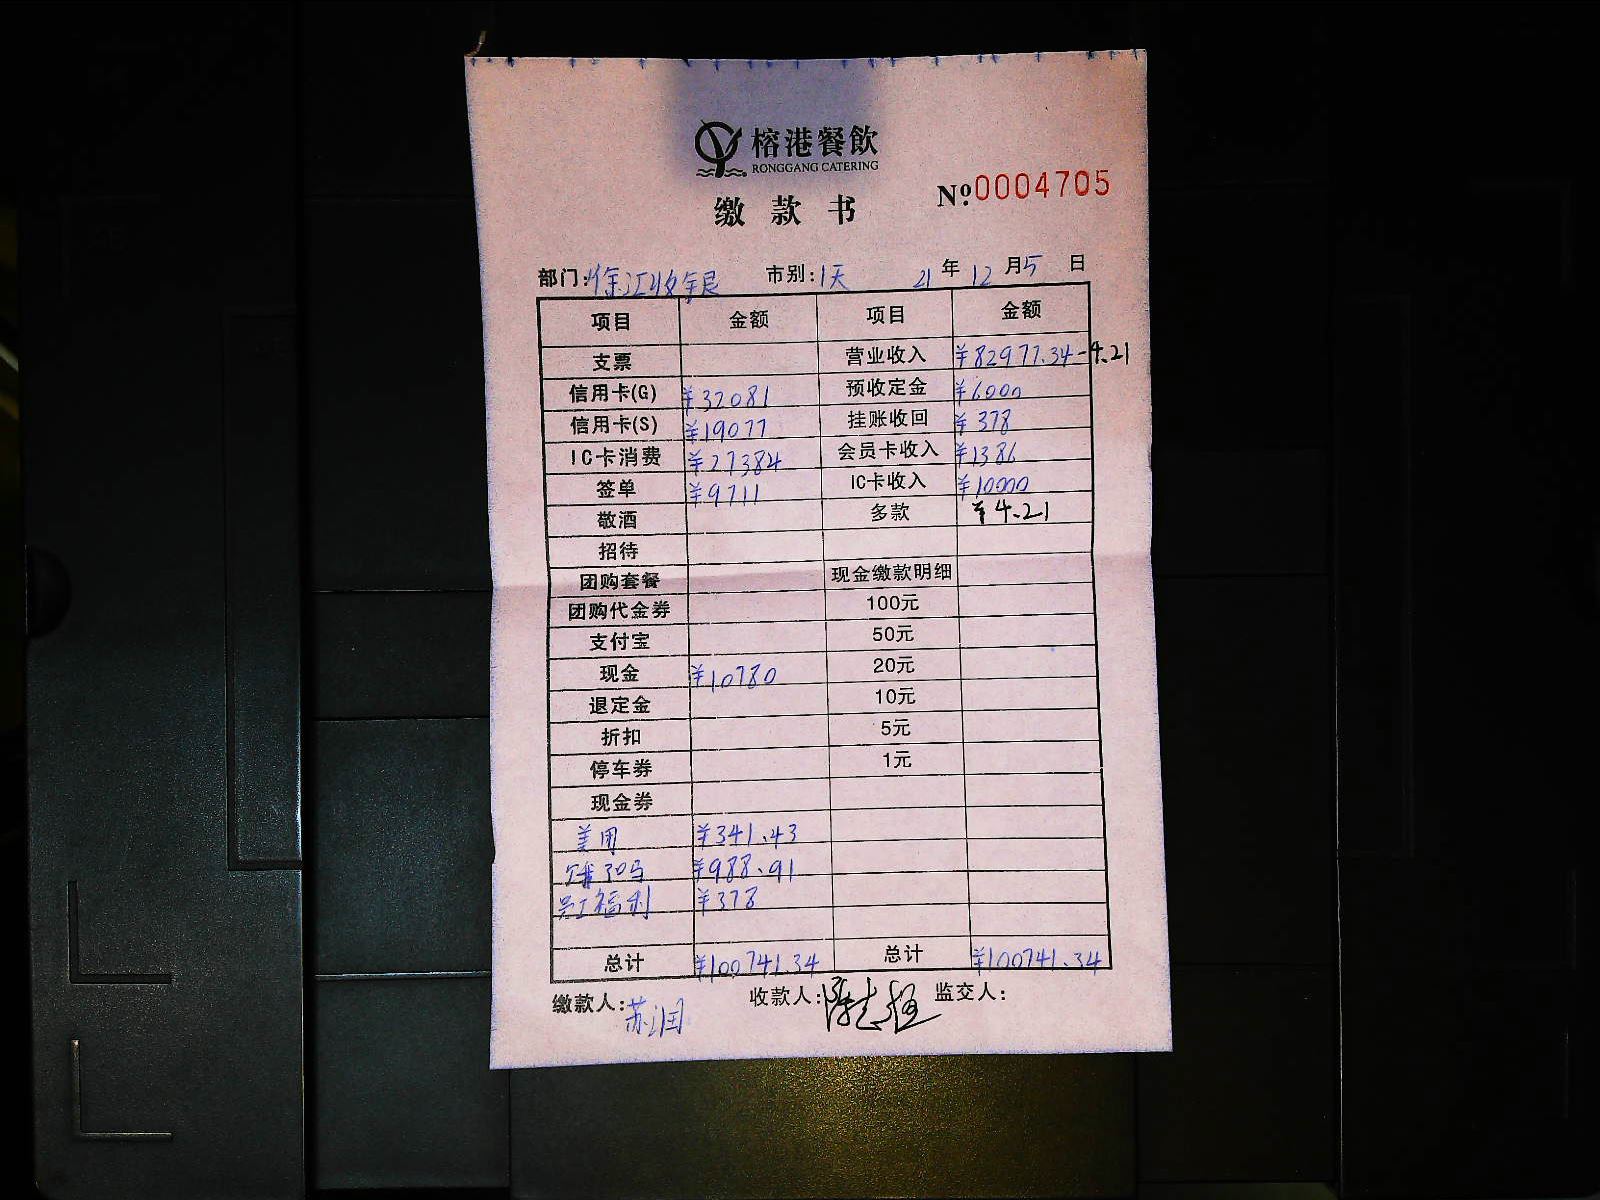 榕港餐飲
RONGGANG CATERING
缴款书
Nº.0004705
部门:徐汇收银 市别:1天 21年12月5日
项目 金额 项目 金额
支票 营业收入 ¥82977.34-4.21
信用卡(G) ¥32081 预收定金 ¥6000
信用卡(S) ¥19077 挂账收回 ¥378
IC卡消费 ¥27384 会员卡收入 ¥1386
签单 ¥9711 IC卡收入 ¥10000
敬酒 多款 ¥4.21
招待
团购套餐 现金缴款明细
团购代金券 100元
支付宝 50元
现金 ¥10780 20元
退定金 10元
折扣 5元
停车券 1元
现金券
美团 ¥341.43
饿了吗 ¥988.91
员工福利 ¥378
总计 ¥100741.34 总计 ¥100741.34
缴款人:苏 收款人:陈志 监交人: